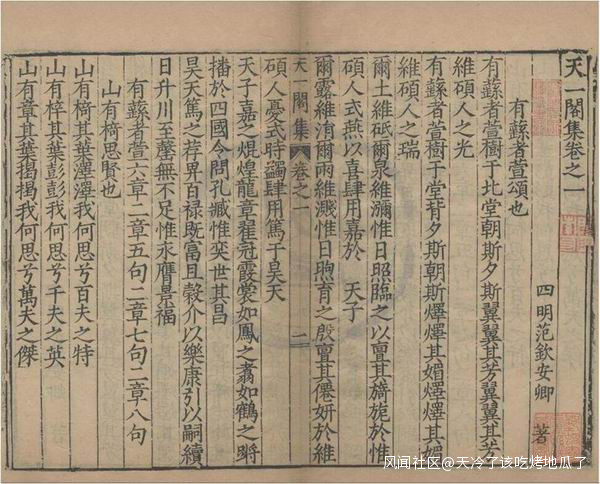 天一閣集卷之一
四明范欽安卿　著
有蘇者萱頌也
有蘇者萱樹于北堂朝斯夕斯翼翼其芳翼翼其芳
維碩人之光
有蘇者萱樹于堂背夕斯朝斯燡燡其媚燡燡其媚
維碩人之瑞
爾土維砥爾泉維瀰惟日照臨之以亶其旖旎於惟
碩人式燕以喜肆用嘉於　天子
爾露維湑爾雨維濺惟日煦育之殷亶其僊妍於維
天一閣集　卷之一　二
碩人憂式時蠲肆用篤于昊天
天子嘉之焜煌龍章翟冠霞裳如鳳之翥如鶴之蹌
播於四國令問孔臧惟奕世其昌
昊天篤之荐畀百祿既富且穀介以樂康引以嗣續
日升川至罄無不足惟永膺景福
有蘇者萱六章二章五句二章七句二章八句
山有椅思賢也
山有椅其葉澤澤我何思兮百夫之特
山有梓其葉彭彭我何思兮千夫之英
山有章其葉揭揭我何思兮萬夫之傑
风闻社区@天冷了该吃烤地瓜了